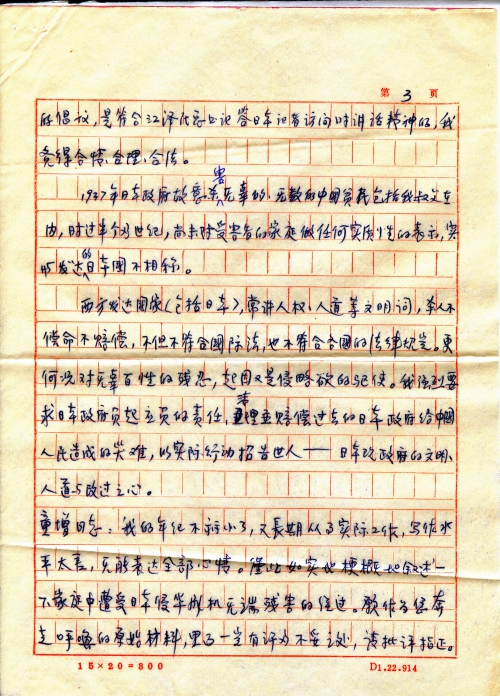 第 3 页
的倡议，是符合江泽民总书记答日本记者访问时讲话精神的，我
觉得合情、合理、合法。
1937年日本政府故意杀害无辜的、无数的中国贫民包括我叔父在
内，时过半个多世纪，尚未对受害者的家庭做任何实质性的表示，实
与发达的日本国不相称。
西方发达国家（包括日本），常讲人权、人道等文明词，杀人不
偿命不赔偿，不但不符合国际法，也不符合各国的法律规定。更
何况对无辜百姓的残忍，起因又是侵略欲的驱使。我强烈要
求日本政府负起应负的责任，赔偿过去的日本政府给中国
人民造成的灾难，以实际行动报告世人——日本现政府的文明、
人道与改过之心。
童增同志：我的年纪不小了，又长期从事实际工作，写作水
平太差，无能表达全部心情。仅此如实地梗概地叙述一
个家庭中遭受日本侵华战机无端残害的经过。愿作为您奔
走呼唤的原始材料，里一定有许为不妥之处，请批评指正。
15×20=300
D1.22.914